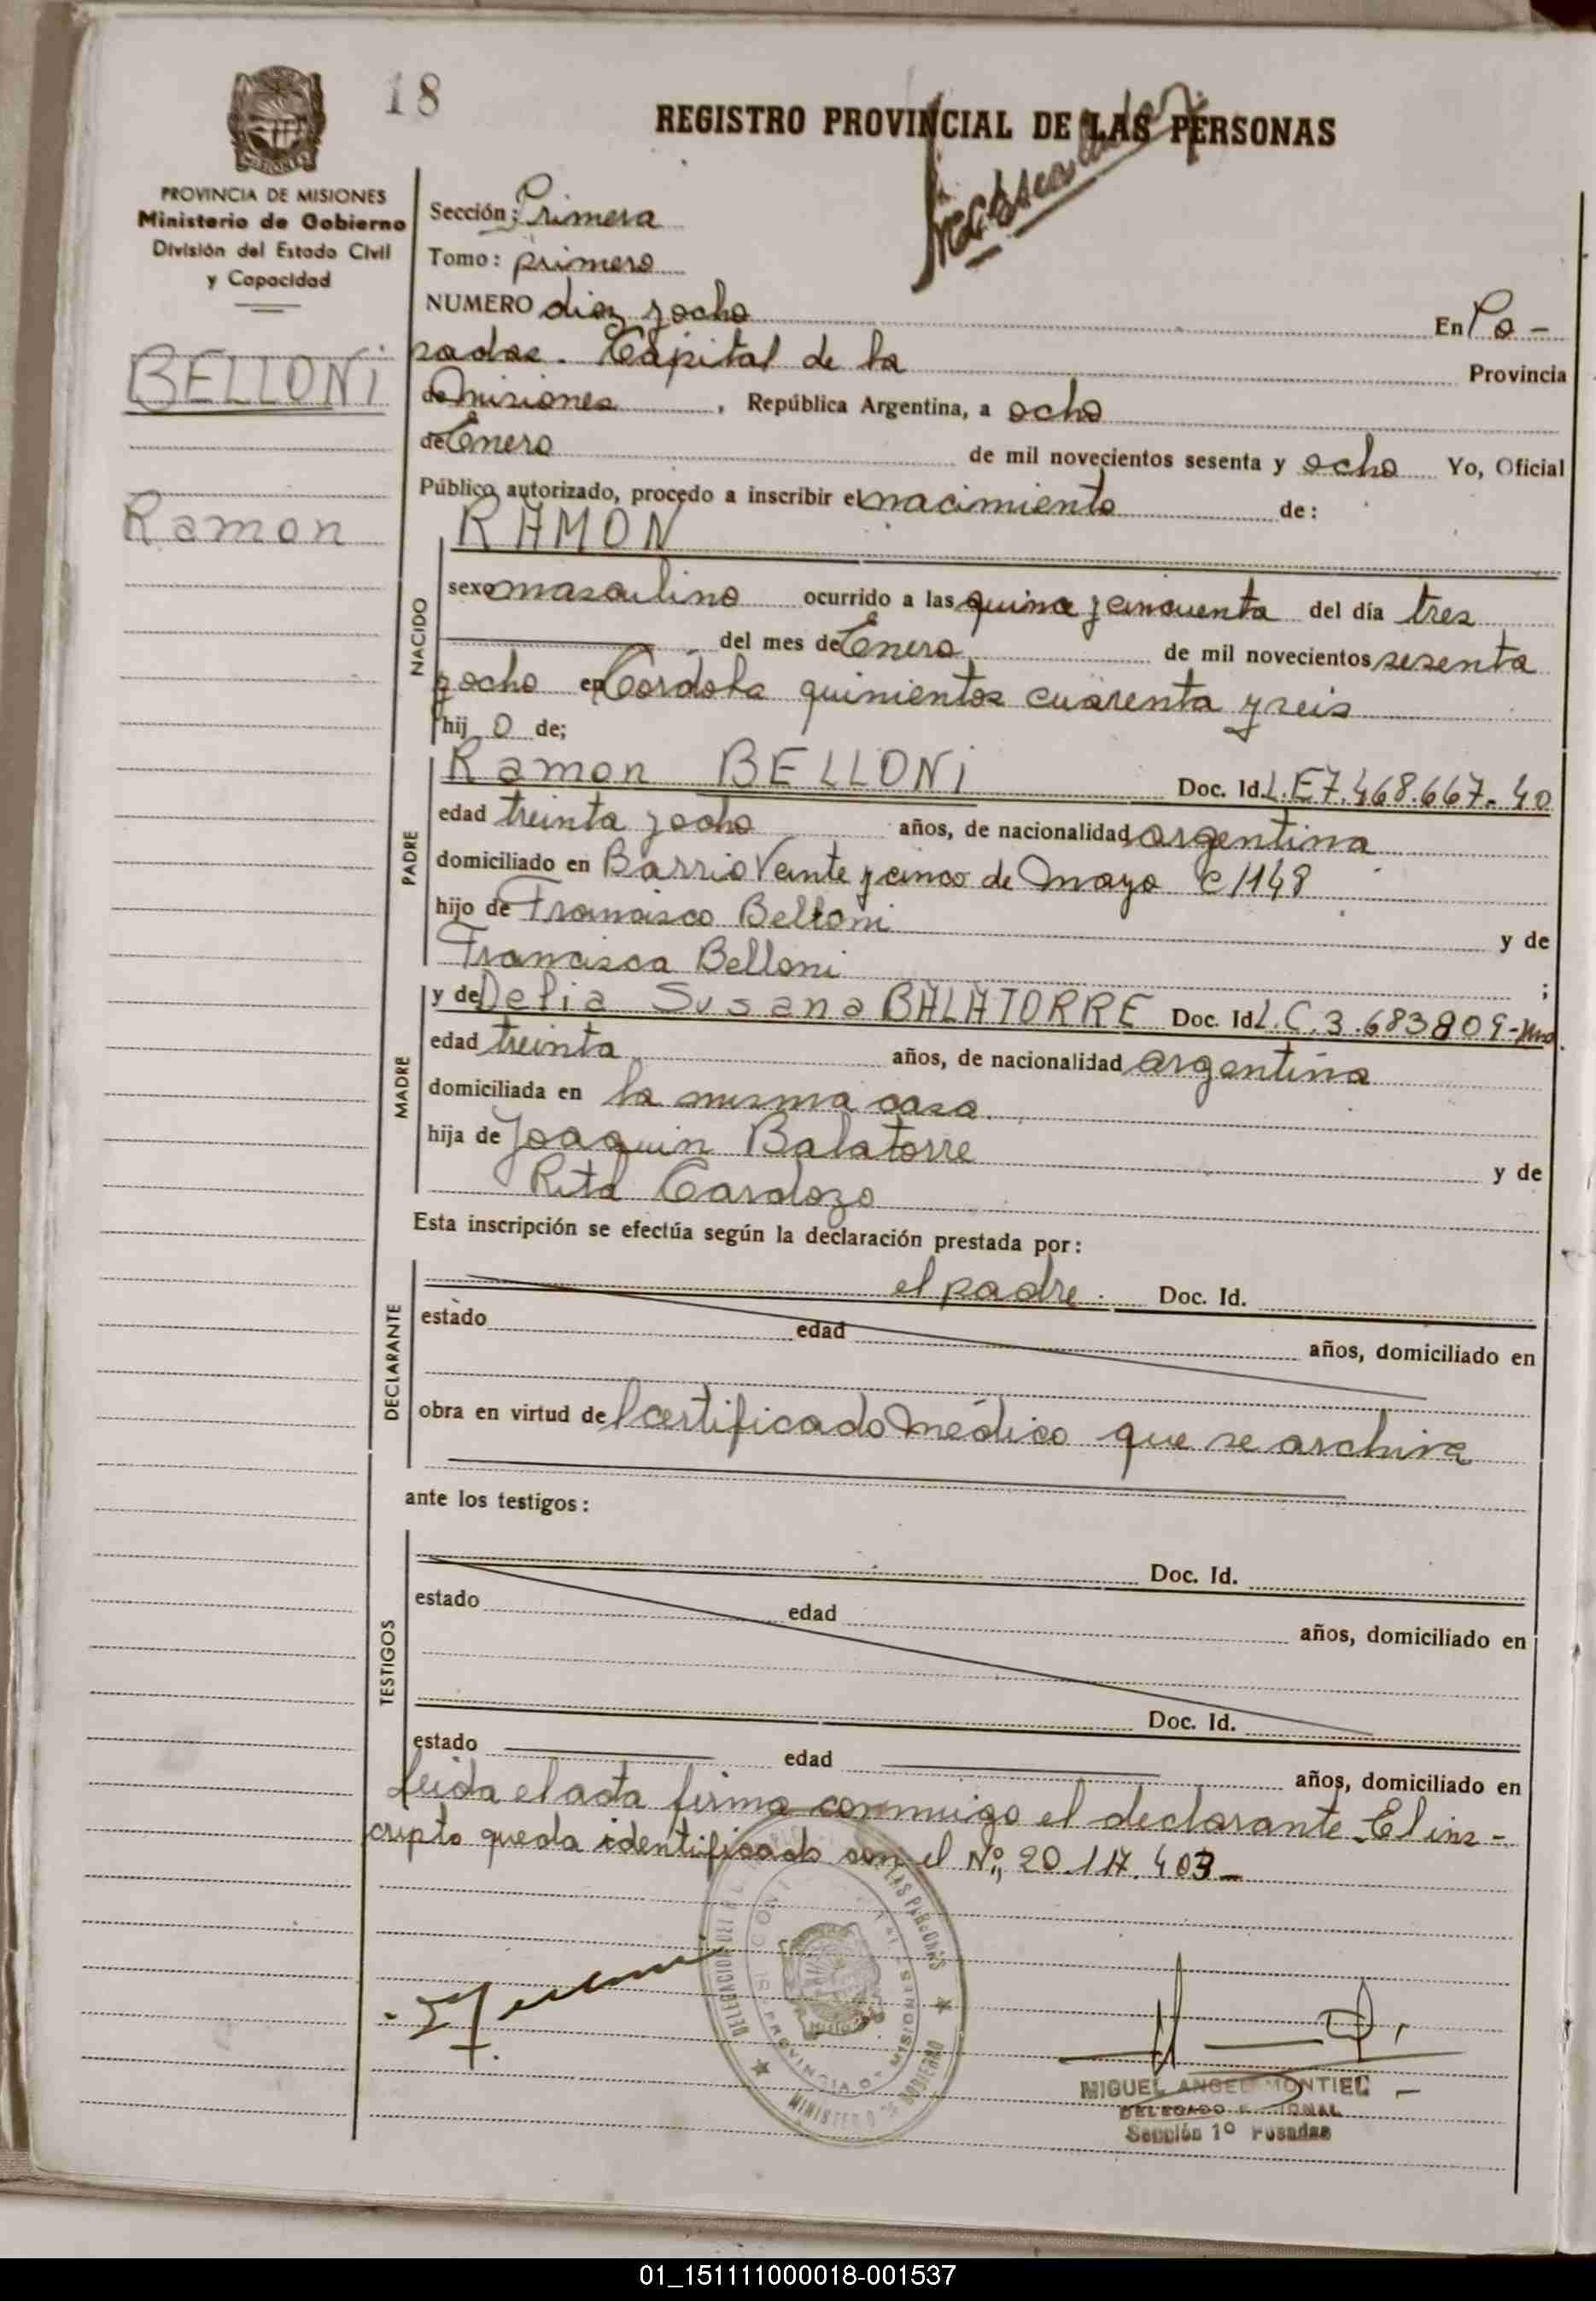 18
REGISTRO PROVINCIAL DE LAS PERSONAS
PROVINCIA DE MISIONES
Ministerio de Gobierno
División del Estado Civil
y Capacidad
BELLONI
Ramon
Sección: Primera
Tomo: primero
NUMERO diez y ocho En Po-
sadas. Capital de la Provincia
de Misiones, República Argentina, a ocho
de Enero de mil novecientos sesenta y ocho Yo, Oficial
Público autorizado, procedo a inscribir el nacimiento de:
NACIDO
RAMON
sexo masculino ocurrido a las quince y cincuenta del día tres
del mes de Enero de mil novecientos sesenta
y ocho en Cordoba quinientos cuarenta y seis
hij o de;
PADRE
Ramon BELLONI Doc. Id. L.E 7.468.667-40
edad treinta y ocho años, de nacionalidad argentina
domiciliado en Barrio Veinte y cinco de Mayo C/148
hijo de Francisco Belloni y de
Francisca Belloni ;
MADRE
y de Delia Susana BALATORRE Doc. Id L.C. 3.683809-
edad treinta años, de nacionalidad argentina
domiciliada en la misma casa.
hija de Joaquin Balatorre y de
Rita Cardozo
Esta inscripción se efectúa según la declaración prestada por:
DECLARANTE
el padre. Doc. Id.
estado edad años, domiciliado en
obra en virtud del certificado médico que se archiva
ante los testigos:
TESTIGOS
Doc. Id.
estado edad años, domiciliado en
Doc. Id.
estado edad años, domiciliado en
Leida el acta firma conmigo el declarante. El ins-
cripto queda identificado con el Nº 20.117.403-
MINISTERIO DE GOBIERNO
PROVINCIA DE MISIONES
MIGUEL ANGEL MONTIEL
DELEGADO
Sección 1º Posadas
01_151111000018-001537